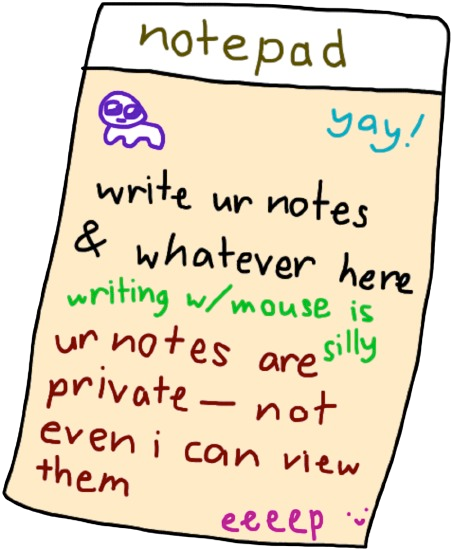 notepad
yay!
write ur notes
& whatever here
writing w/mouse is
silly
ur notes are
private — not
even i can view
them
eeeep :)